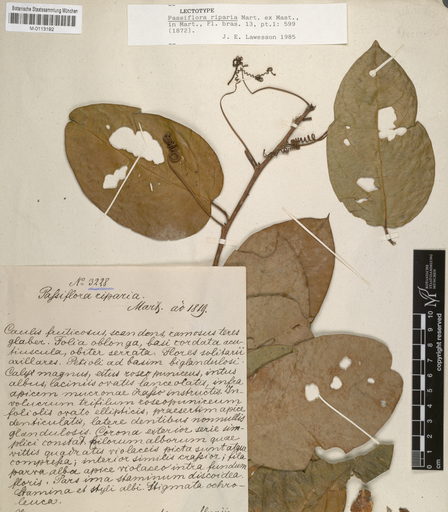 Botanische Staatssammlung München
M-0113192
LECTOTYPE
Passiflora riparia Mart. ex Mast.,
in Mart., Fl. bras. 13, pt.1: 599
(1872).
J. E. Lawesson 1985
No 3228
Passiflora riparia
Mart. 1819.
Caulis fruticosus, scandens ramosus teres
glaber. Folia oblonga, basi cordata acu-
tiuscula, obiter serrata. Flores solitarii
axillares. Petioli ad basim biglandulosi.
Calyx magnus, extus roseo puniceus, intus
albus, laciniis ovatis lanceolatis, infra
apicem mucronae instructis. In-
volucrum trifilium roseo puniceum
foliolis ovato ellipticis, praesertim apice
denticulatis, latere dentibus nonnullis
glandulosis. Corona exterior serie sim-
plici constat pilorum alborum quae
vittis violaceis picta sunt atque
compressa; interior similis crassior; fila
parva alba apice violaceo intra fundum
floris. Pars ima staminum discoidea.
Stamina et styli albi. Stigmata ochro-
leuca.
M
BOTANISCHE
STAATSSAMMLUNG
MÜNCHEN